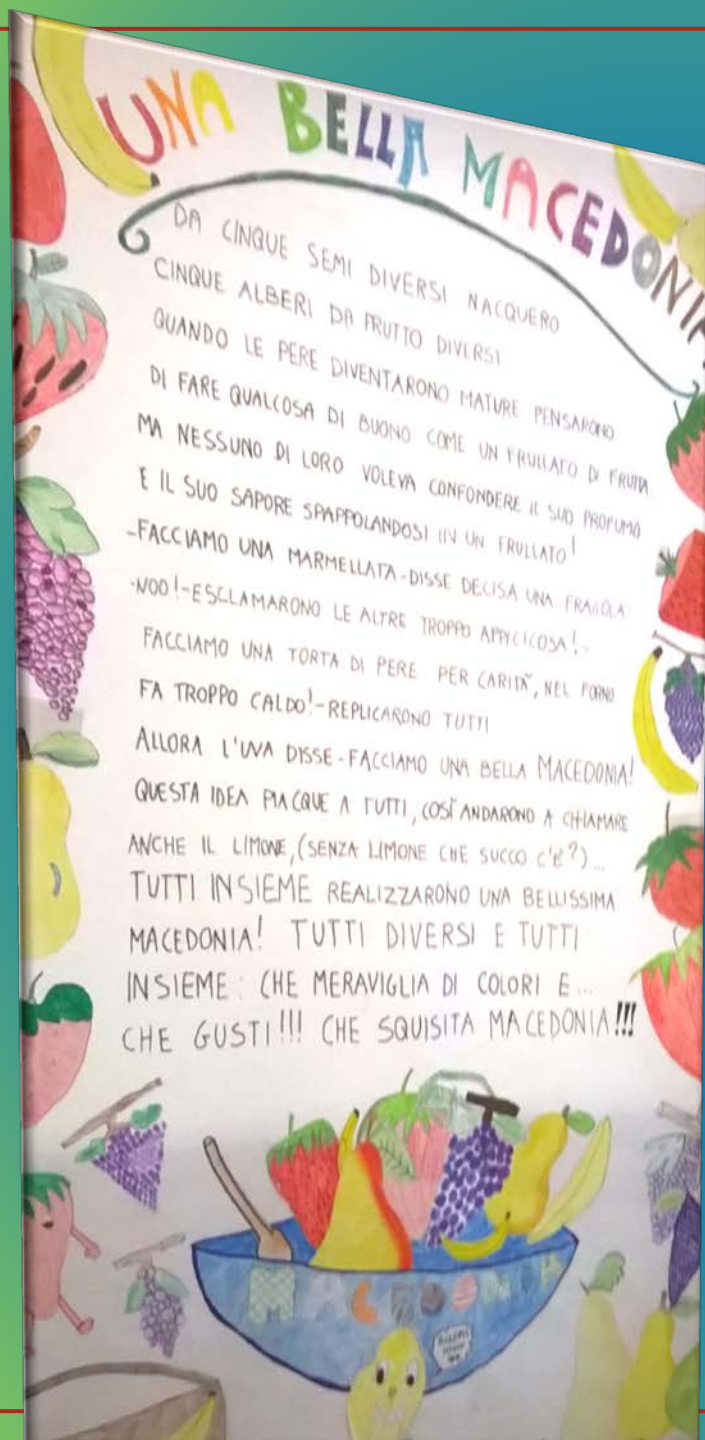 UNA BELLA MACEDONIA
DA CINQUE SEMI DIVERSI NACQUERO
CINQUE ALBERI DA FRUTTO DIVERSI
QUANDO LE PERE DIVENTARONO MATURE PENSARONO
DI FARE QUALCOSA DI BUONO COME UN FRULLATO DI FRUTTA
MA NESSUNO DI LORO VOLEVA CONFONDERE IL SUO PROFUMO
E IL SUO SAPORE SPAPPOLANDOSI IN UN FRULLATO!
-FACCIAMO UNA MARMELLATA-DISSE DECISA UNA FRAGOLA
-NOO!-ESCLAMARONO LE ALTRE TROPPO APPICICOSA!-
FACCIAMO UNA TORTA DI PERE PER CARITÀ, NEL FORNO
FA TROPPO CALDO!-REPLICARONO TUTTI
ALLORA L'UVA DISSE-FACCIAMO UNA BELLA MACEDONIA!
QUESTA IDEA PIACQUE A TUTTI, COSÌ ANDARONO A CHIAMARE
ANCHE IL LIMONE, (SENZA LIMONE CHE SUCCO C'È?)...
TUTTI INSIEME REALIZZARONO UNA BELLISSIMA
MACEDONIA! TUTTI DIVERSI E TUTTI
INSIEME: CHE MERAVIGLIA DI COLORI E...
CHE GUSTI!!! CHE SQUISITA MACEDONIA!!!
MACEDONIA